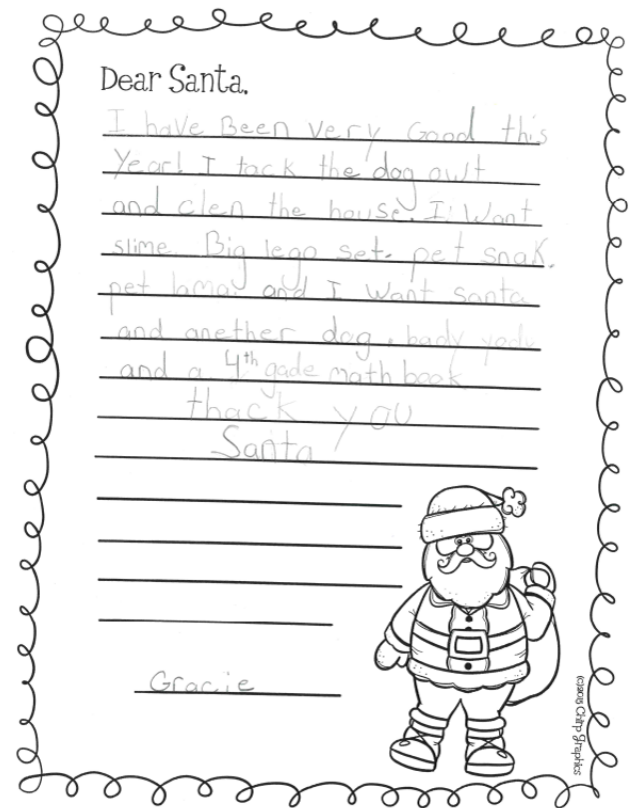 Dear Santa,
I have Been very Good this
Year! I tack the dog owt
and clen the house. I want
slime. Big lego set. pet snak.
pet lama. and I want santa
and anether dog. bady yodu
and a 4th gade math book
thack you
Santa
Gracie
(c)2015 Chirp Graphics